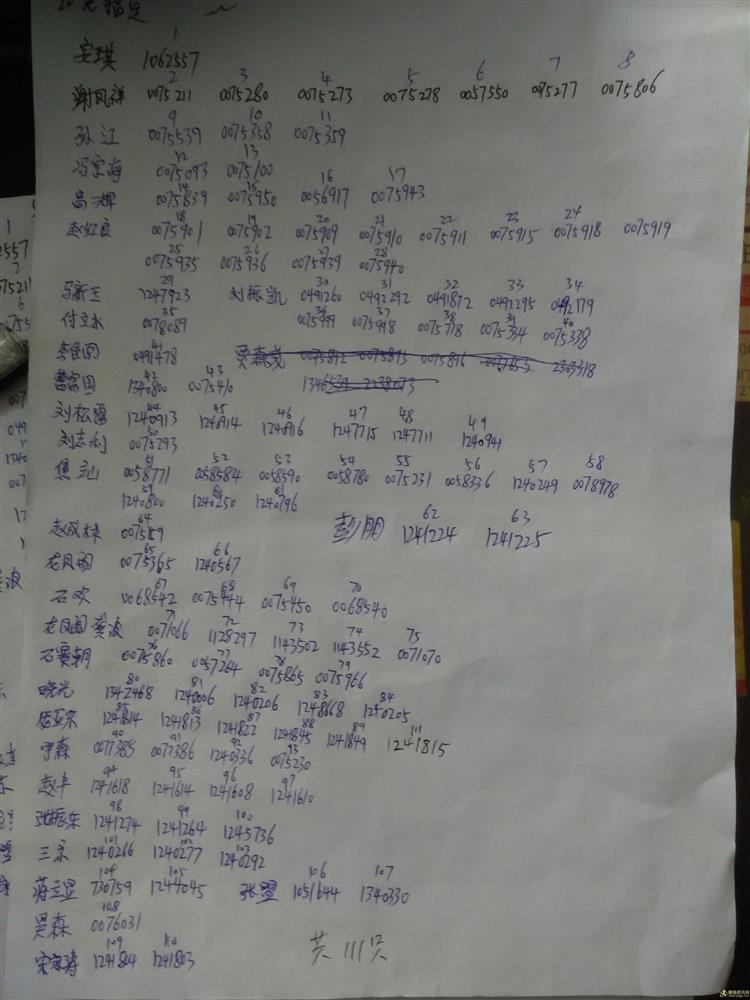 20元指定
1
安琪 1062557
2 3 4 5 6 7 8
谢凤祥 0075211 0075280 0075273 0075278 0057550 0075277 0075806
9 10 11
孙江 0075539 0075358 0075359
12 13
冯宗海 0075093 0075100
14 15 16 17
高辉 0075839 0075950 0056917 0075943
18 19 20 21 22 23 24
赵红良 0075901 0075902 0075909 0075910 0075911 0075915 0075918 0075919
25 26 27 28
0075935 0075936 0075939 0075940
29 30 31 32 33 34
马新玉 1247923 刘振凯 0491260 0492292 0491872 0492295 0492179
35 36 37 38 39 40
付立水 0078089 0075999 0075998 0075778 0075334 0075338
41
0491478 贾森茂 0075892 0075895 0075896 2303318
42 43
曹富国 1340800 0075410
44 45 46 47 48 49
刘松雷 1240913 1240914 1240916 1247715 1247711 1240941
50
刘志利 0075293
51 52 53 54 55 56 57 58
焦立山 0058771 0058584 0058590 0058780 0075231 0058336 1240249 0078978
59 60 61
1240800 1240250 1240796
64 62 63
赵成林 007589 彭朋 1241224 1241225
65 66
龙凤阁 0075365 1240567
67 68 69 70
石欢 0068542 0075444 0075450 0068540
71 72 73 74 75
龙凤阁 龚波 0071066 1128297 1143502 1143552 0071070
76 77 78 79
石赛朝 0075860 0057264 0075865 0075966
80 81 82 83 84
晓光 1342468 1240006 1240206 1248668 1240205
85 86 87 88 89 111
1241814 1241813 1241822 1241845 1241849 1241815
90 91 92 93
宁森 0077385 0077386 1240336 0075230
94 95 96 97
赵丰 1241618 1241614 1241608 1241610
98 99 100
张振东 1241274 1241264 1245736
101 102 103
三京 1240266 1240277 1240292
104 105 106 107
蒋立显 730759 1244045 张盟 1051644 1340330
108
贾森 0076031
109 110
宋家涛 1241804 1241803
共111只